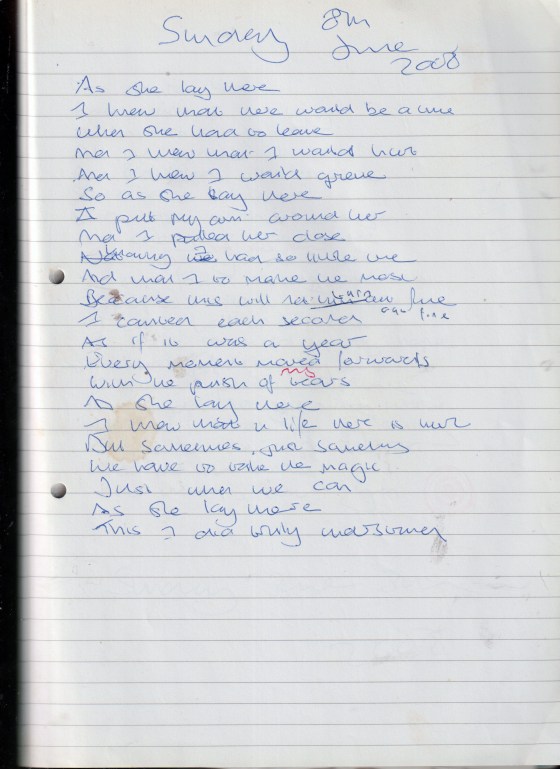 Sunday 8th
June
2008
As she lay here
I knew that there would be a time
when she had to leave
And I knew that I would hurt
And I knew I would grieve
So as she lay here
I put my arm around her
And I pulled her close
Knowing we had so little time
And that I to make the most
Because this will not again
I counted each second
As if it was a year
Every moment moved forwards
With the push of tears
As she lay here
I knew that in life there is hurt
But sometimes, just sometimes
We have to take the magic
Just when we can
As she lay there
This I did truly understand